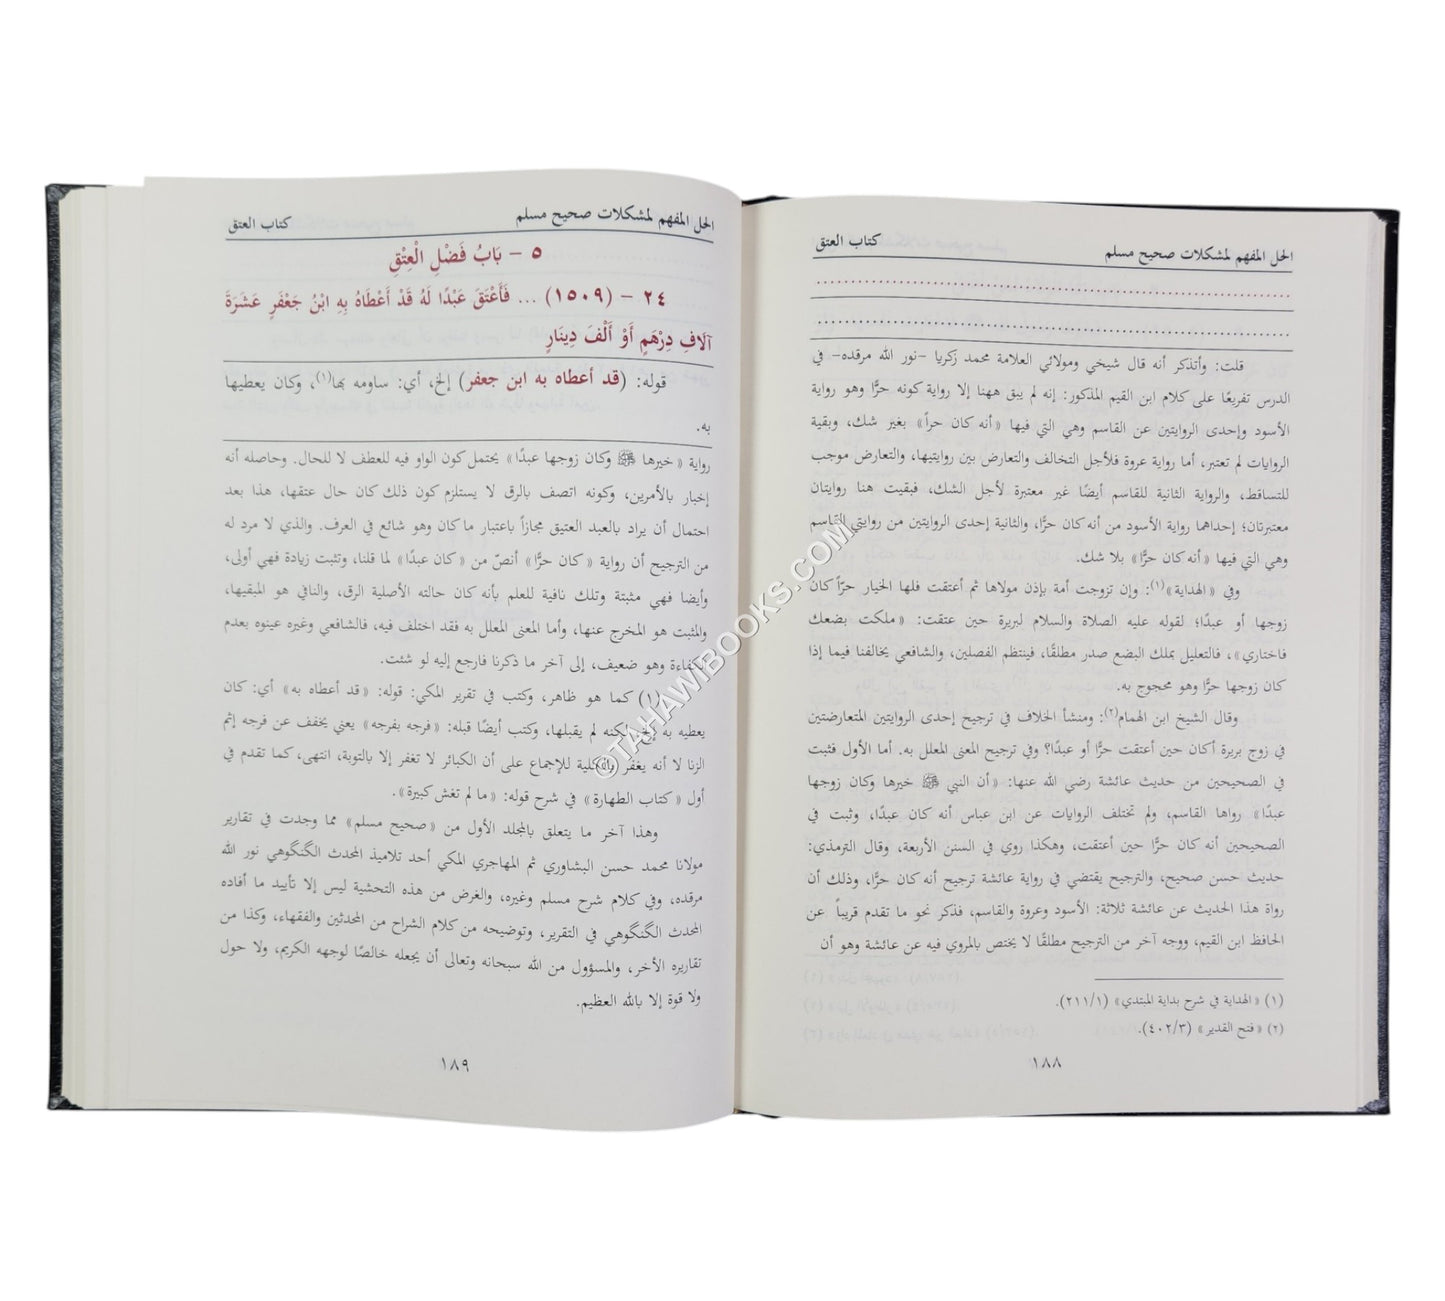 الحل المفهم لمشكلات صحيح مسلم
كتاب العتق
قلت: وأتذكر أنه قال شيخي ومولائي العلامة محمد زكريا -نور الله مرقده- في
الدرس تفريعًا على كلام ابن القيم المذكور: إنه لم يبق ههنا إلا رواية كونه حرًّا وهو رواية
الأسود وإحدى الروايتين عن القاسم وهي التي فيها «أنه كان حراً» بغير شك، وبقية
الروايات لم تعتبر، أما رواية عروة فلأجل التخالف والتعارض بين روايتيها، والتعارض موجب
للتساقط، والرواية الثانية للقاسم أيضًا غير معتبرة لأجل الشك، فبقيت هنا روايتان
معتبرتان؛ إحداهما رواية الأسود من أنه كان حرًّا، والثانية إحدى الروايتين من روايتي القاسم
وهي التي فيها «أنه كان حرًّا» بلا شك.
وفي «الهداية»(١): وإن تزوجت أمة بإذن مولاها ثم أعتقت فلها الخيار حرّاً كان
زوجها أو عبدًا؛ لقوله عليه الصلاة والسلام لبريرة حين عتقت: «ملكت بضعك
فاختاري»، فالتعليل بملك البضع صدر مطلقًا، فينتظم الفصلين، والشافعي يخالفنا فيما إذا
كان زوجها حرًّا وهو محجوج به.
وقال الشيخ ابن الهمام(٢): ومنشأ الخلاف في ترجيح إحدى الروايتين المتعارضتين
في زوج بريرة أكان حين أعتقت حرًّا أو عبدًا؟ وفي ترجيح المعنى المعلل به. أما الأول فثبت
في الصحيحين من حديث عائشة رضي الله عنها: «أن النبي ﷺ خيرها وكان زوجها
عبدًا» رواها القاسم، ولم تختلف الروايات عن ابن عباس أنه كان عبدًا، وثبت في
الصحيحين أنه كان حرًّا حين أعتقت، وهكذا روي في السنن الأربعة، وقال الترمذي:
حديث حسن صحيح، والترجيح يقتضي في رواية عائشة ترجيح أنه كان حرًّا، وذلك أن
رواة هذا الحديث عن عائشة ثلاثة: الأسود وعروة والقاسم، فذكر نحو ما تقدم قريباً عن
الحافظ ابن القيم، ووجه آخر من الترجيح مطلقًا لا يختص بالمروي فيه عن عائشة وهو أن
(١) «الهداية في شرح بداية المبتدي» (٢١١/١).
(٢) «فتح القدير» (٤٠٢/٣).
١٨٨
الحل المفهم لمشكلات صحيح مسلم
كتاب العتق
٥ - بَابُ فَضْلِ الْعِتْقِ
٢٤ - (١٥٠٩) ... فَأَعْتَقَ عَبْدًا لَهُ قَدْ أَعْطَاهُ بِهِ ابْنُ جَعْفَرٍ عَشَرَةَ
آلَافِ دِرْهَمٍ أَوْ أَلْفَ دِينَارٍ
قوله: (قد أعطاه به ابن جعفر) إلخ، أي: ساومه بها(١)، وكان يعطيها
به.
رواية «خيرها ﷺ وكان زوجها عبدًا» يحتمل كون الواو فيه للعطف لا للحال. وحاصله أنه
إخبار بالأمرين، وكونه اتصف بالرق لا يستلزم كون ذلك كان حال عتقها، هذا بعد
احتمال أن يراد بالعبد العتيق مجازاً باعتبار ما كان وهو شائع في العرف. والذي لا مرد له
من الترجيح أن رواية «كان حرًّا» أنصّ من «كان عبدًا» لما قلنا، وتثبت زيادة فهي أولى،
وأيضا فهي مثبتة وتلك نافية للعلم بأنه كان حالته الأصلية الرق، والنافي هو المبقيها،
والمثبت هو المخرج عنها، وأما المعنى المعلل به فقد اختلف فيه، فالشافعي وغيره عينوه بعدم
الكفاءة وهو ضعيف، إلى آخر ما ذكرنا فارجع إليه لو شئت.
(١) كما هو ظاهر، وكتب في تقرير المكي: قوله: «قد أعطاه به» أي: كان
يعطيه به إلخ، لكنه لم يقبلها، وكتب أيضًا قبله: «فرجه بفرجه» يعني يخفف عن فرجه إثم
الزنا لا أنه يغفر بالكلية للإجماع على أن الكبائر لا تغفر إلا بالتوبة، انتهى، كما تقدم في
أول «كتاب الطهارة» في شرح قوله: «ما لم تغش كبيرة».
وهذا آخر ما يتعلق بالمجلد الأول من «صحيح مسلم» مما وجدت في تقارير
مولانا محمد حسن البشاوري ثم المهاجري المكي أحد تلاميذ المحدث الگنگوهي نور الله
مرقده، وفي كلام شرح مسلم وغيره، والغرض من هذه التحشية ليس إلا تأييد ما أفاده
المحدث الگنگوهي في التقرير، وتوضيحه من كلام الشراح من المحدثين والفقهاء، وكذا من
تقاريره الأخر، والمسؤول من الله سبحانه وتعالى أن يجعله خالصًا لوجهه الكريم، ولا حول
ولا قوة إلا بالله العظيم.
١٨٩
©TAHAWIBOOKS.COM